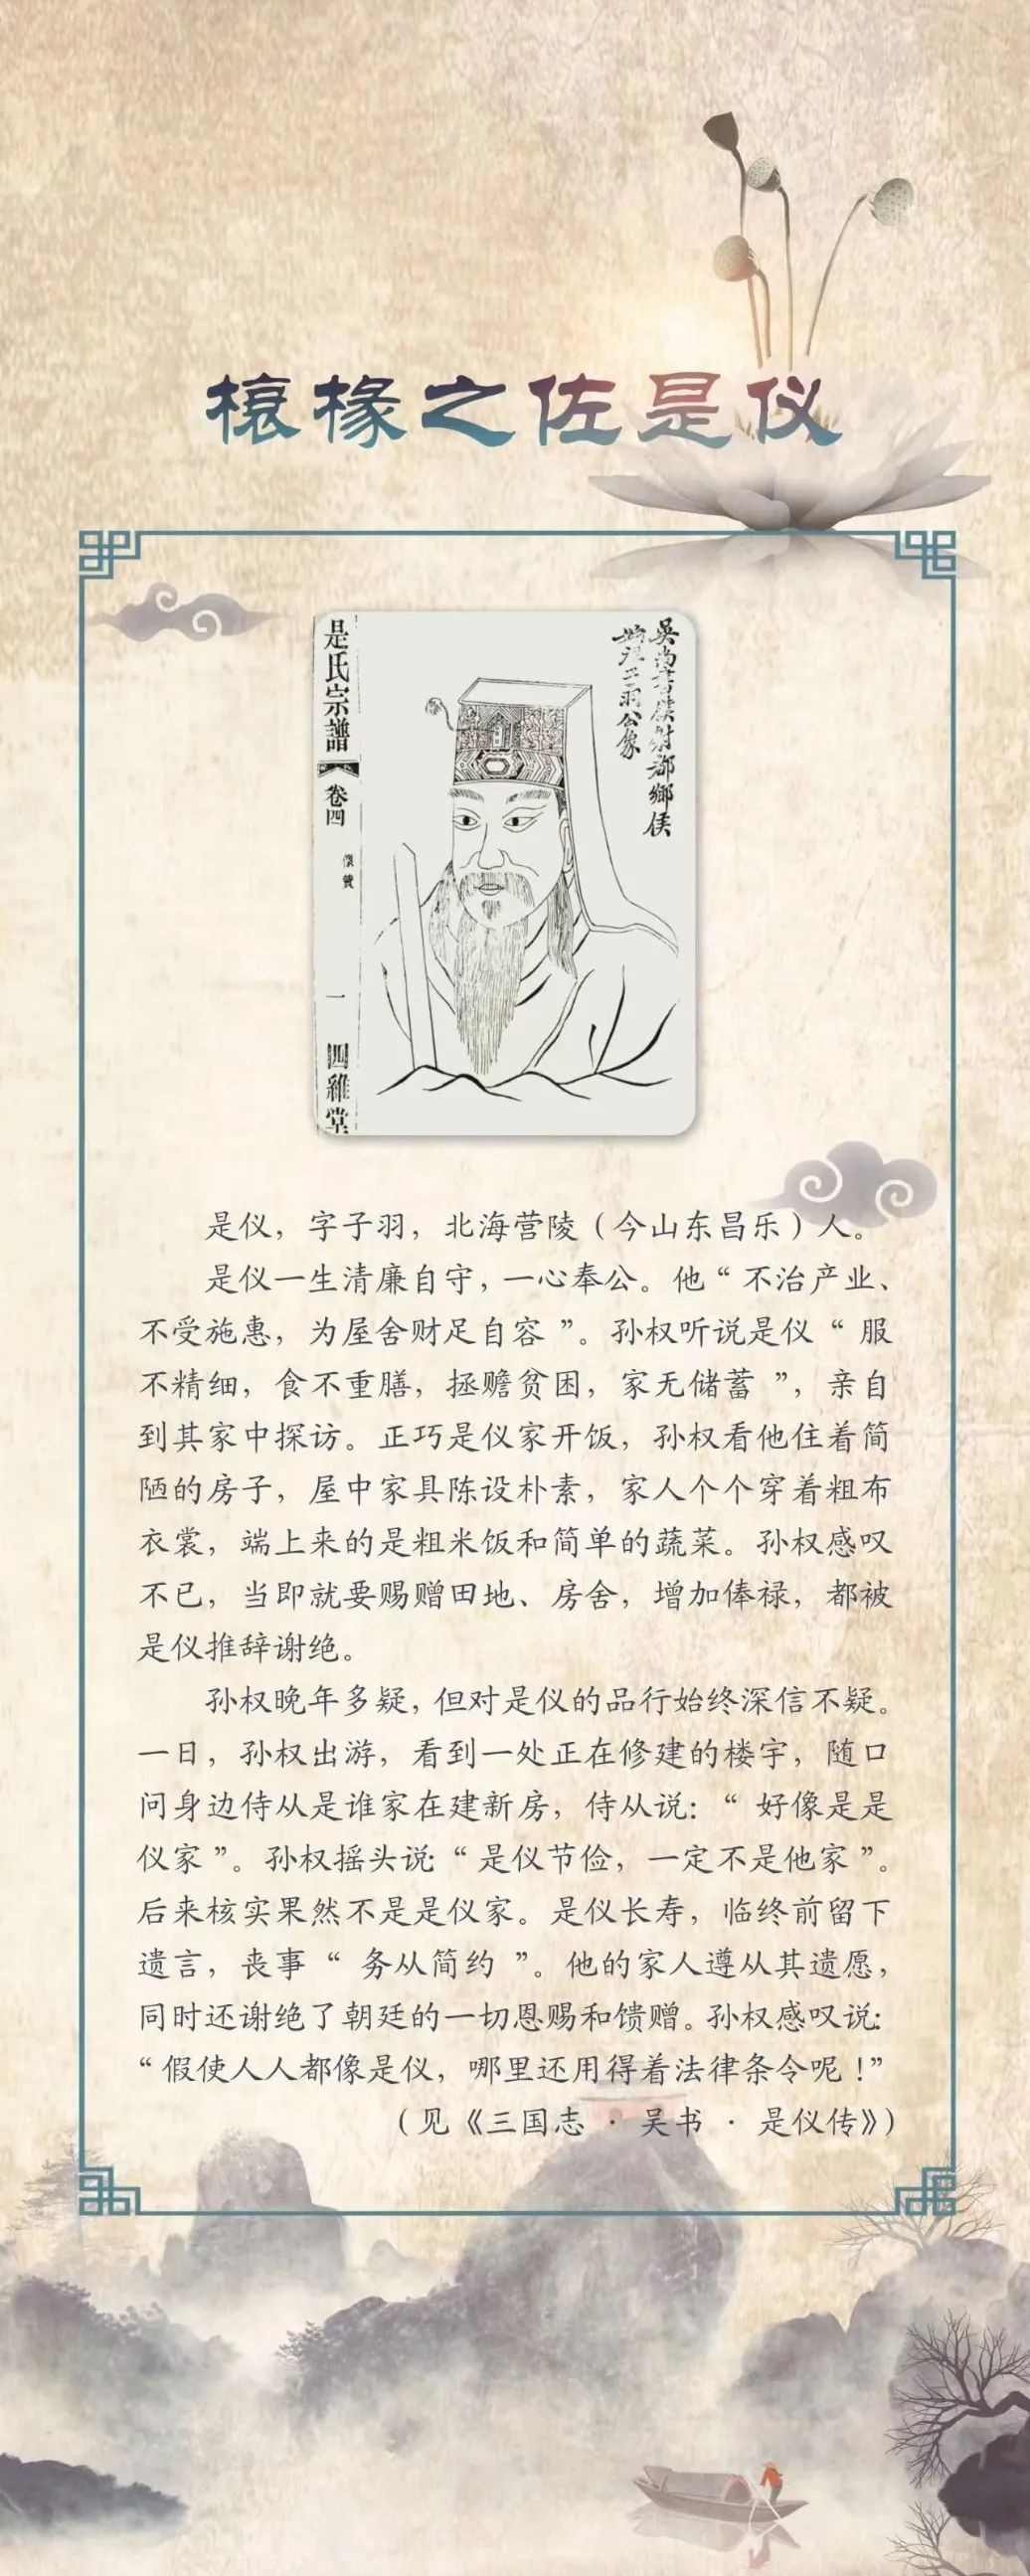 榱椽之佐是仪
吴尚书仆射都乡侯
公像
是氏宗譜
卷四
像贊
一
四維堂
是仪，字子羽，北海营陵（今山东昌乐）人。
是仪一生清廉自守，一心奉公。他“不治产业、
不受施惠，为屋舍财足自容”。孙权听说是仪“服
不精细，食不重膳，拯赡贫困，家无储蓄”，亲自
到其家中探访。正巧是仪家开饭，孙权看他住着简
陋的房子，屋中家具陈设朴素，家人个个穿着粗布
衣裳，端上来的是粗米饭和简单的蔬菜。孙权感叹
不已，当即就要赐赠田地、房舍，增加俸禄，都被
是仪推辞谢绝。
孙权晚年多疑，但对是仪的品行始终深信不疑。
一日，孙权出游，看到一处正在修建的楼宇，随口
问身边侍从是谁家在建新房，侍从说：“好像是是
仪家”。孙权摇头说：“是仪节俭，一定不是他家”。
后来核实果然不是是仪家。是仪长寿，临终前留下
遗言，丧事“务从简约”。他的家人遵从其遗愿，
同时还谢绝了朝廷的一切恩赐和馈赠。孙权感叹说：
“假使人人都像是仪，哪里还用得着法律条令呢！”
（见《三国志·吴书·是仪传》）